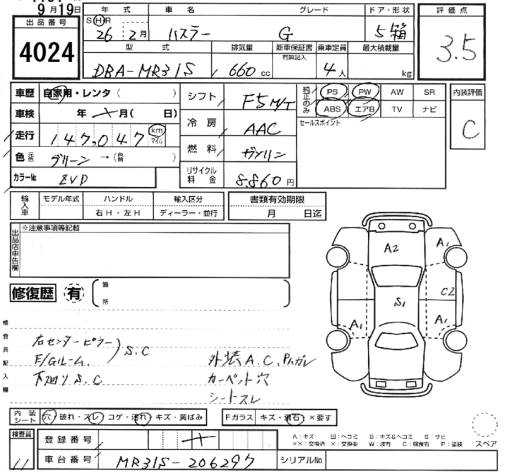 9月19日
出品番号
4024
年式 車名 グレード ドア・形状
SHR 26年 2月 ハスラー G 5 箱
型式 排気量 新車保証書 乗車定員 最大積載量
有無記入
DBA-MR31S 660cc 4人 kg
評価点
3.5
内装評価
C
車歴 自家用・レンタ( )
車検 年 月( 日)
走行 147,047 km マイル
色 グリーン →( )
カラーNo ZVD
シフト F5M/T
冷房 AAC
燃料 ガソリン
リサイクル料金 8.860円
純正のみ PS PW AW SR
ABS エアB TV ナビ
セールスポイント
輸入車 モデル年式 ハンドル 輸入区分
右H・左H ディーラー・並行
書類有効期限
月 日迄
出品店申告欄
※注意事項等記載
修復歴 有 箇所
検査員記入欄
右センターピラー
E/Gルーム. S.C
下廻りS.C
外装A.C,P.ハガレ
カーペット穴
シートスレ
A2
A1
S1
C2
A1
A1
内装シート 穴・破れ・スレ コゲ・汚れ キズ・黄ばみ
Fガラス キズ・飛石 ×要す
A:キズ U:ヘコミ B:キズ&ヘコミ S:サビ
スペア
検査員
11
登録番号
車台番号 MR31S-206297
シリアルNo